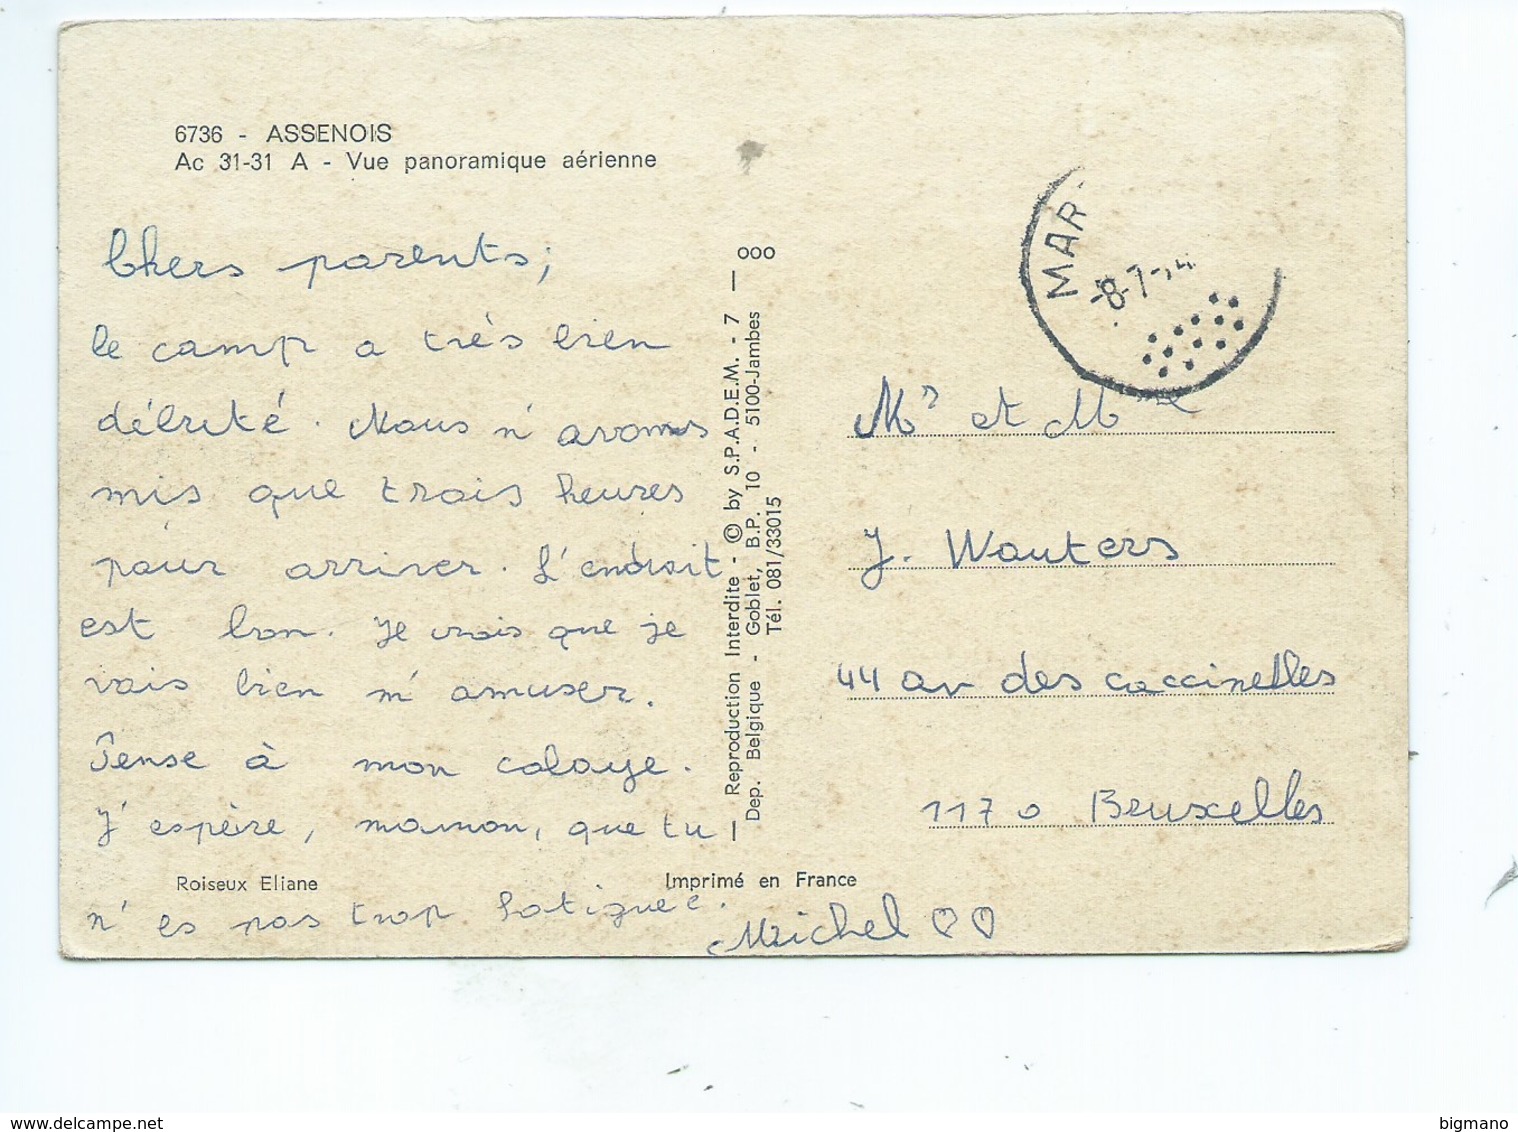 6736 - ASSENOIS
Ac 31-31 A - Vue panoramique aérienne
Chers parents;
le camp a très bien
débuté. Nous n'avons
mis que trois heures
pour arriver. L'endroit
est bon. Je crois que je
vais bien m'amuser.
Pense à mon cobaye.
J'espère, maman, que tu
n'es pas trop fatiguée.
Michel ♡♡
Roiseux Eliane
Imprimé en France
Reproduction Interdite - © by S.P.A.D.E.M. - 7 — ooo
Dep. Belgique - Goblet, B.P. 10 - 5100-Jambes
Tél. 081/33015
MAR
-8-7-
Mr et Mme
J. Wauters
44 av des coccinelles
1170 Bruxelles
bigmano